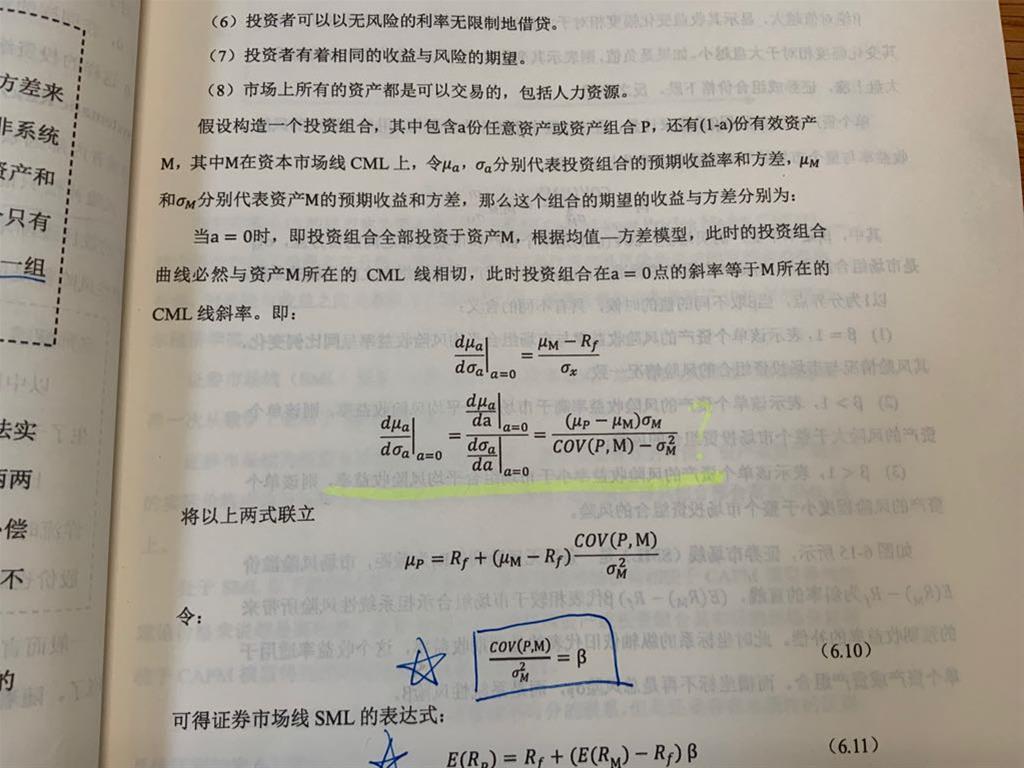 方差来
非系统
资产和
只有
一组
法实
两两
偿
不
一般而言
的
(6) 投资者可以以无风险的利率无限制地借贷。
(7) 投资者有着相同的收益与风险的期望。
(8) 市场上所有的资产都是可以交易的，包括人力资源。
假设构造一个投资组合，其中包含a份任意资产或资产组合 P，还有(1-a)份有效资产
M，其中M在资本市场线 CML 上，令μₐ, σₐ分别代表投资组合的预期收益率和方差，μ_M
和σ_M分别代表资产M的预期收益和方差，那么这个组合的期望的收益与方差分别为：
当a = 0时，即投资组合全部投资于资产M，根据均值—方差模型，此时的投资组合
曲线必然与资产M所在的 CML 线相切，此时投资组合在a = 0点的斜率等于M所在的
CML 线斜率。即：
dμₐ/dσₐ|ₐ₌₀ = (μ_M − R_f)/σₓ
dμₐ/dσₐ|ₐ₌₀ = (dμₐ/da|ₐ₌₀)/(dσₐ/da|ₐ₌₀) = (μ_P − μ_M)σ_M/(COV(P,M) − σ_M²) ?
将以上两式联立
μ_P = R_f + (μ_M − R_f) COV(P,M)/σ_M²
令：
COV(P,M)/σ_M² = β (6.10)
可得证券市场线 SML 的表达式：
E(R_P) = R_f + (E(R_M) − R_f) β (6.11)